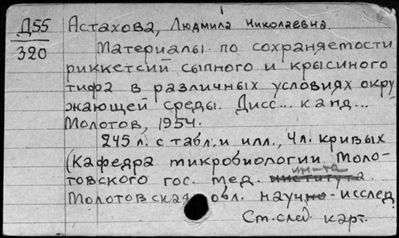 Д55 Астахова, Людмила Николаевна.
320
Материалы по сохраняемости
риккетсий сыпного и крысиного
тифа в различных условиях окру
жающей среды. Дисс... канд...
Молотов, 1954.
245 л. с табл. и илл., 4 л. кривых
(Кафедра микробиологии Моло-
товского гос. мед. ин-та
Молотовская обл. научно-исслед.
См. след карт.